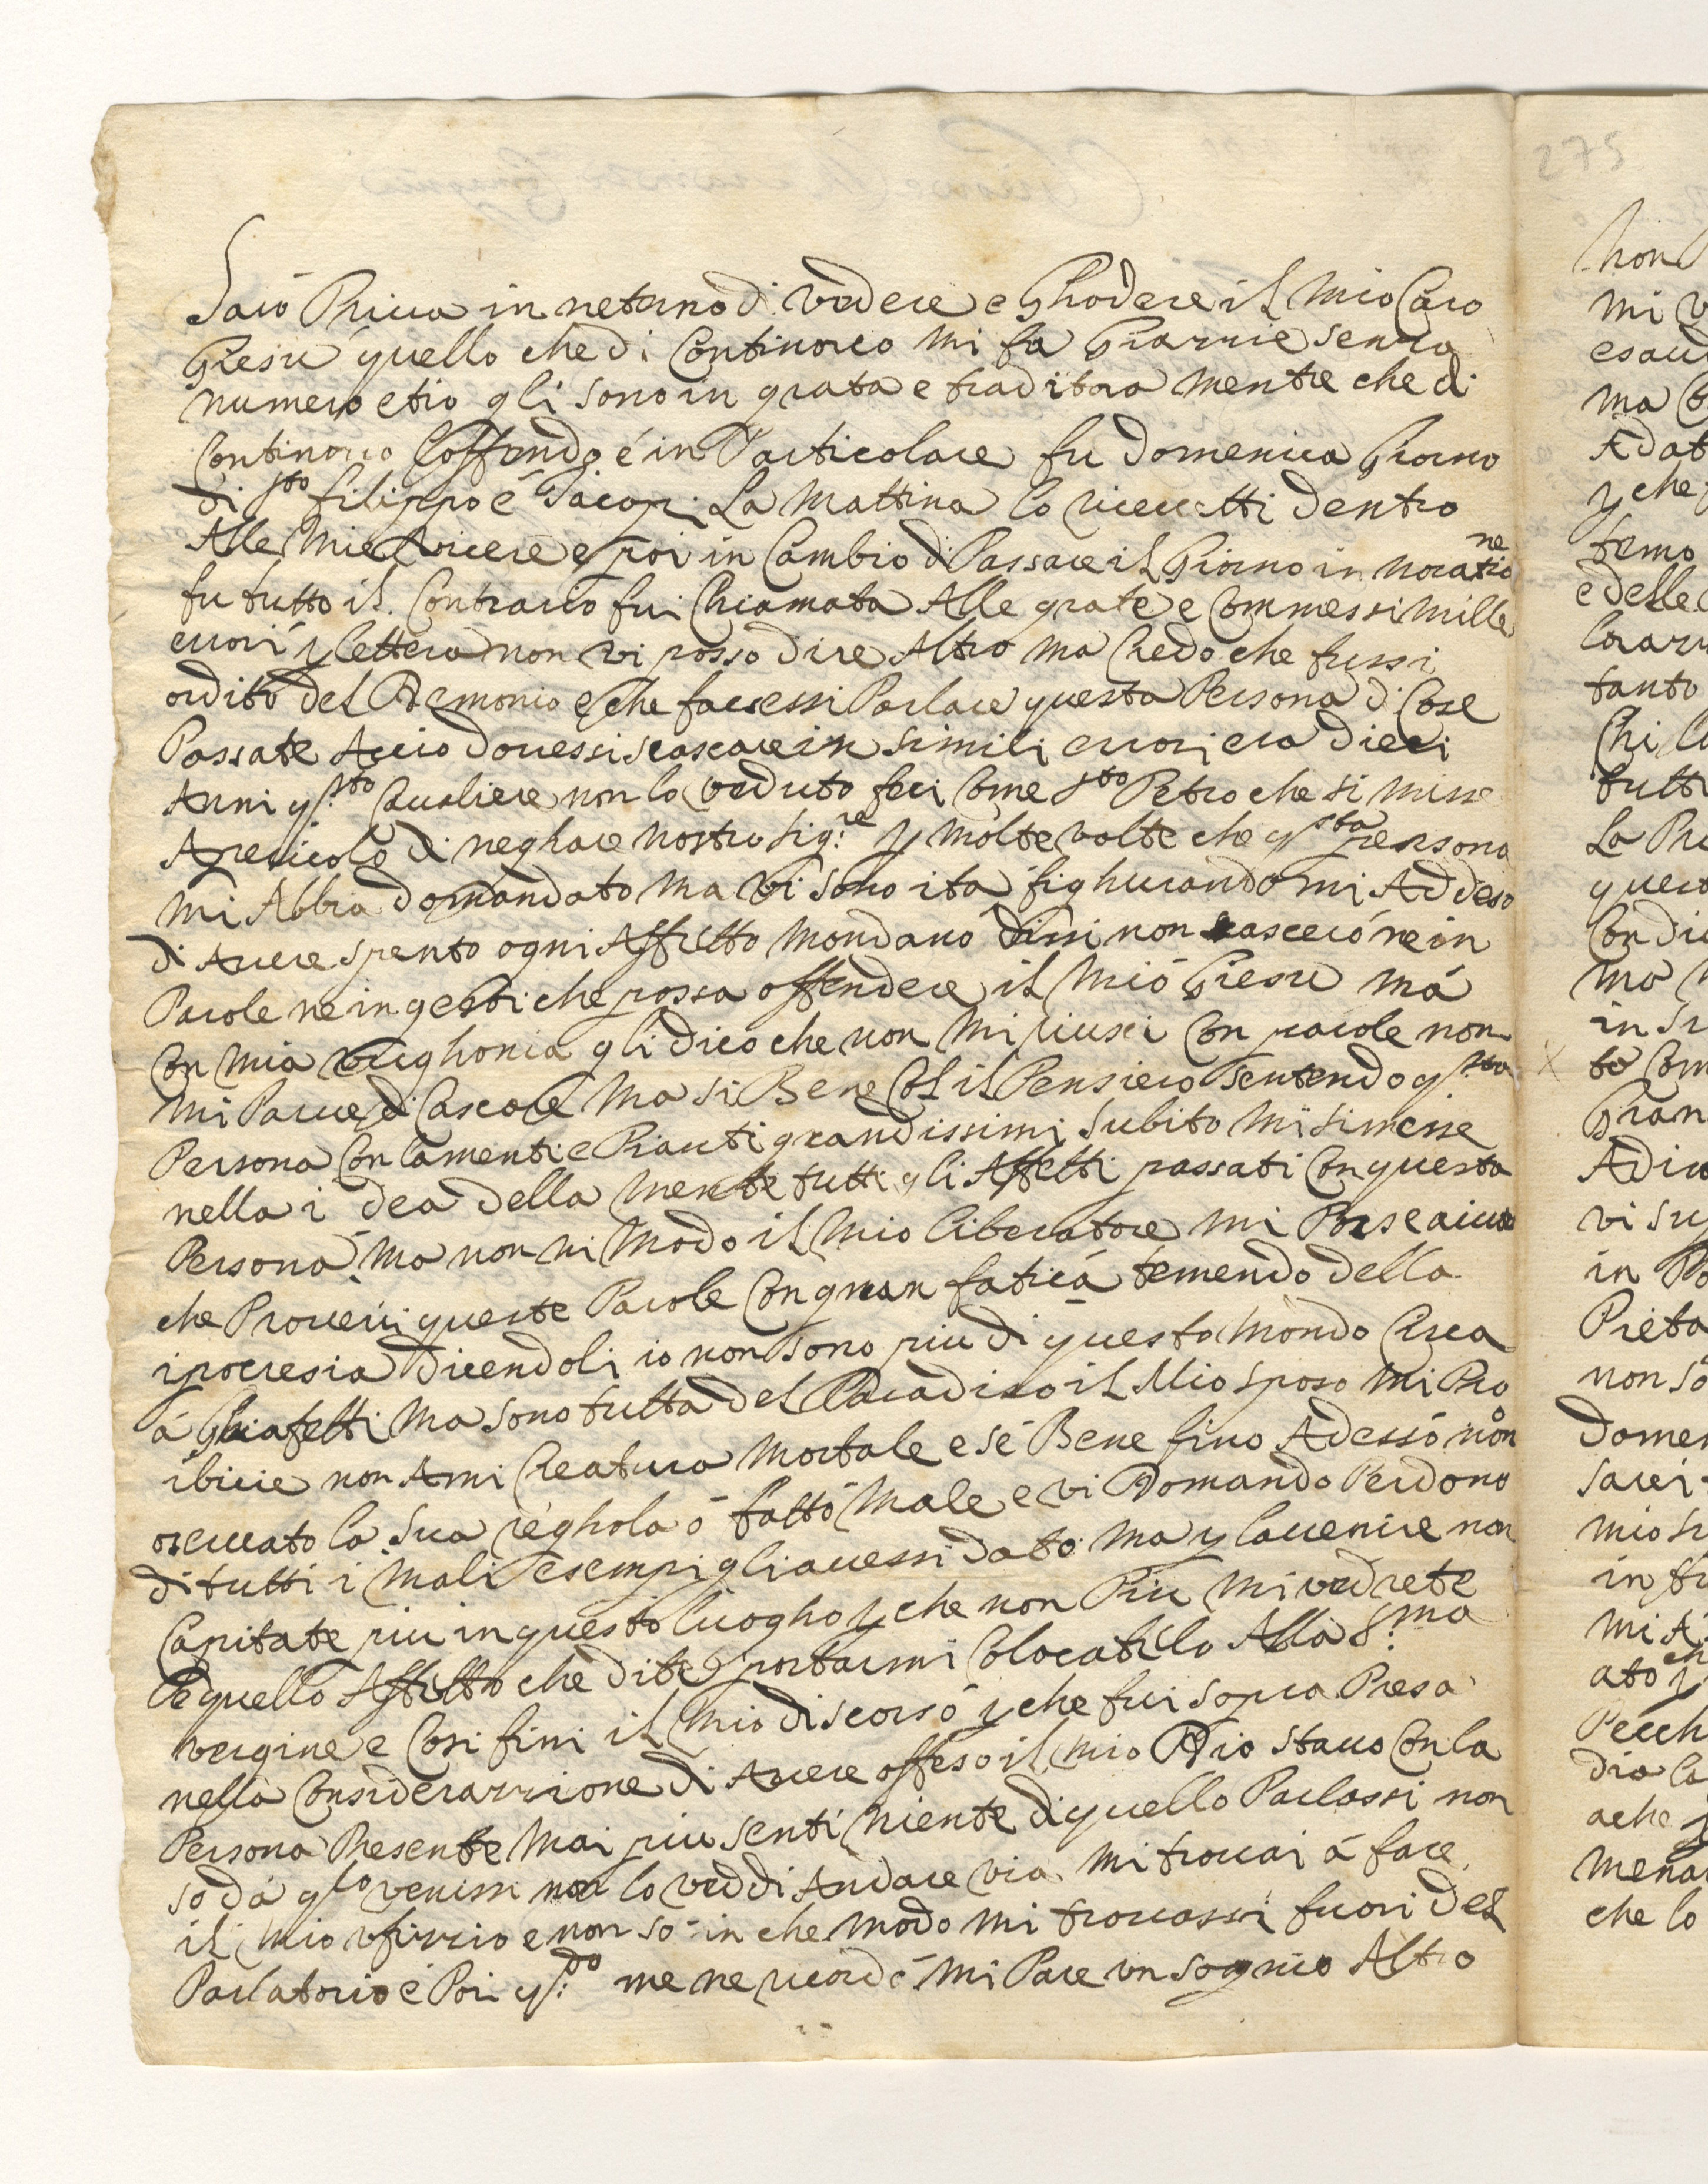 Sarò Priva in neterno di vedere e Ghodere il mio Caro
Giesu quello che di Continovo mi fa Grazzie senza
numero etio gli sono in grata e traditora mentre che di
Continovo Loffendo é in Particolare fu domenica Giorno
di sto filippo é Jacopi La Mattina lo ricevetti dentro
Alle Mie viscere e poi in Cambio di Passare il Giorno in noratione
fu tutto il Contrario fui Chiamata Alle grate e Commessi mille
errori p lettera non vi posso dire Altro ma Credo che fussi
ordito del Demonio e che facessi Parlare questa Persona di Cose
Passate Acciò dovessi scascare in simili errori era dieci
Anni q.sto Cavaliere non lo veduto feci Come sto Petro che si misse
A pericolo di neghare nostro Sig.re p molte volte che q.sta persona
mi Abbia domandato ma vi sono ita fighurandomi Addeso
di Avere spento ogni Affetto Mondano dissi non cascerò ne in
Parole ne in gesti che possa offendere il Mio Giesu má
Con mia verghonia gli dico che non Mi riuscì Con parole non
mi Parve di Cascare Ma si Bene Col il Pensiero sentendo q.sta
Persona Con lamenti e Pianti grandissimi Subito mi si messe
nella i dea della mente tutti gli Affetti passati Con questa
Persona ma non ni modo il mio liberatore mi Porse aiuto
che Proverii queste Parole Con gran faticá temendo della
ipocresia dicendoli io non sono piu di questo mondo Circa
á Ghiafetti Ma sono tutta del Paradiso il Mio sposo mi Pro
ibicie non Ami Creatura mortale e sé Bene fino Adessó non ó
osservato la Sua réghola ó fattó Male e vi Domando Perdono
di tutti i Mali esempi gli avessi dato Ma p lavenire non
Capitate piu in questo luogho p che non Piu mi vedrete
e quello Affetto che dite portarmi Colocatélo Alla S.ma
vergine e Cosi fini il Mio discorsó p che fui sopra Presa
nella Considerazzione di Avere offeso il mio Dio stavo Con la
Persona Presente Mai piu sentí Niente di quello Parlassi non
so dá q.lo venissi non lo veddi Andare via mi trovai á fare
il mio ufizzio e non so in che modo mi trovassi fuori del
Parlatorio é Poi q.do me ne ricordó mi Pare un sognio Altro
275
non
mi
ma
p che
temo
e delle
tanto
Chi
tutti
ma
in
to
Gran
vi
in
Pieta
non so
mi
che lo